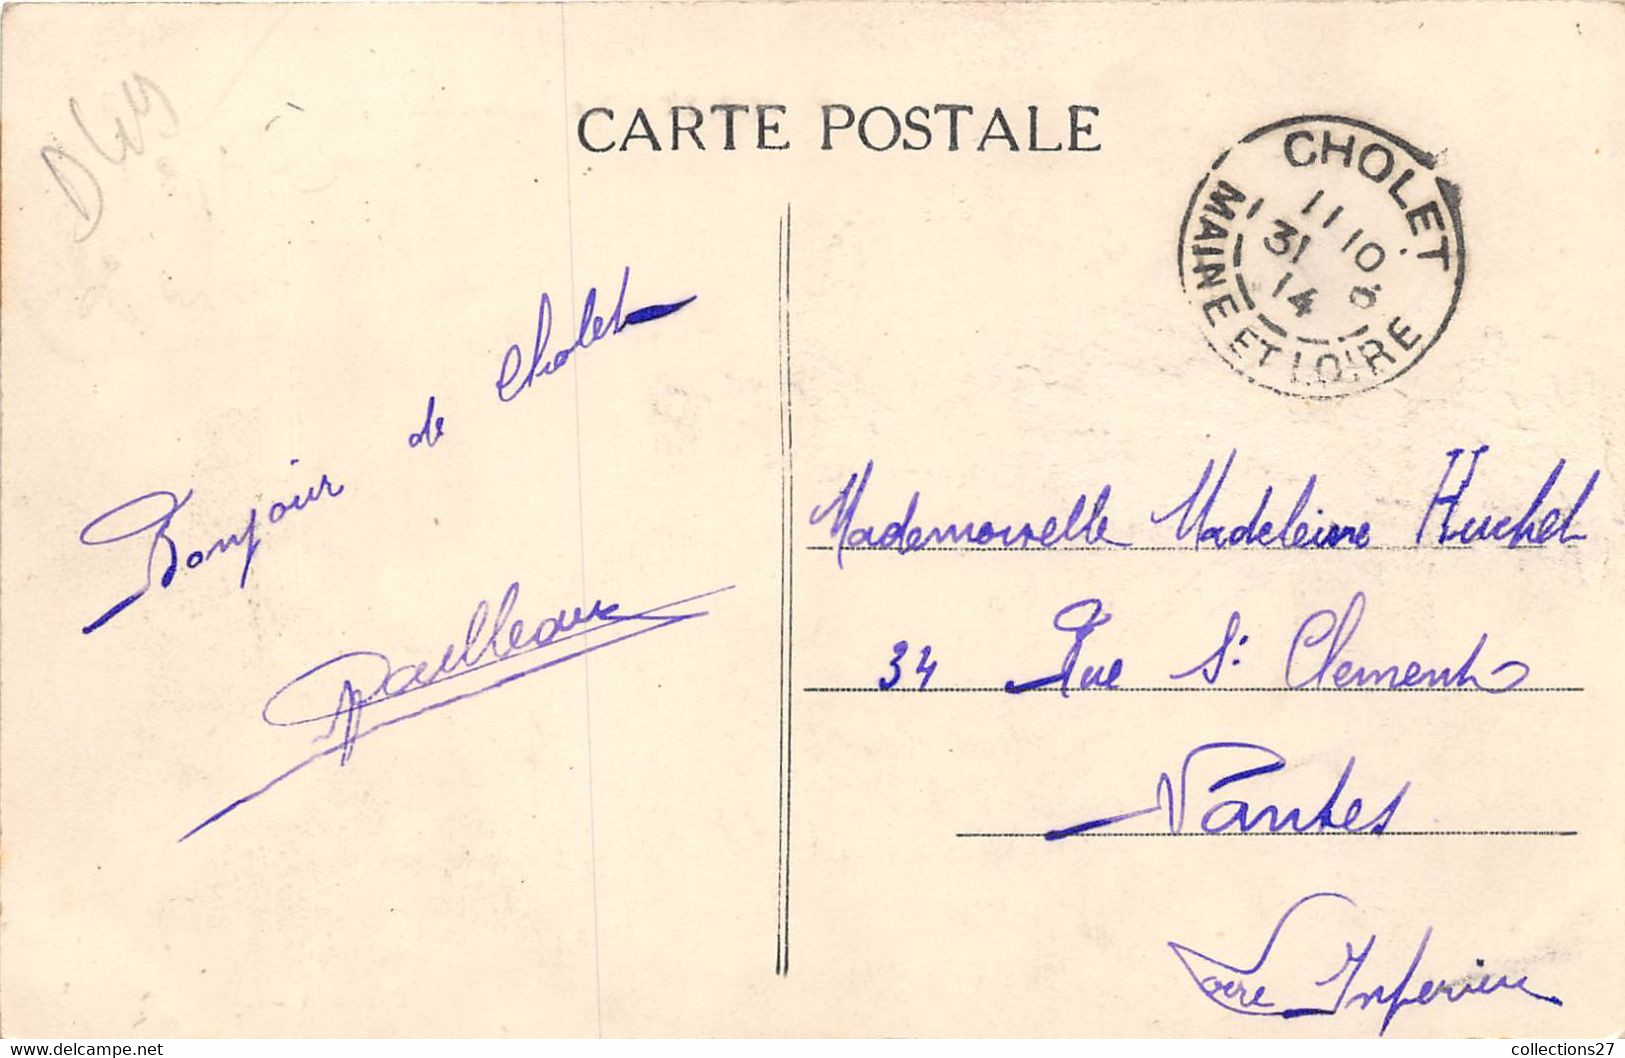 CARTE POSTALE
CHOLET
11 10
31
14
MAINE ET LOIRE
Bonjour de Cholet
Mademoiselle Madeleine Huchet
34 Rue St Clement
Nantes
Loire Inferieu
collections27